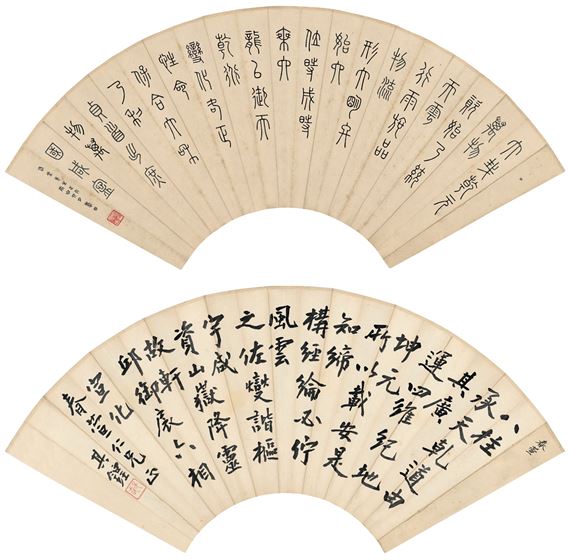 大哉乾元
萬物
資始乃統
天雲
行雨施品
物流
形大明終
始六
位時成時
乘六
龍以御天
乾道
變化各正
性命
保合大和
乃利
貞首出庶
物萬
國咸寧
八柱
承天乾道由
其廣
運四維紀地
坤元
所以載安是
知締
構經綸必佇
風雲
之佐燮諧樞
宇咸
資山嶽降靈
故軒
邱御扆六相
宣化
仁兄正